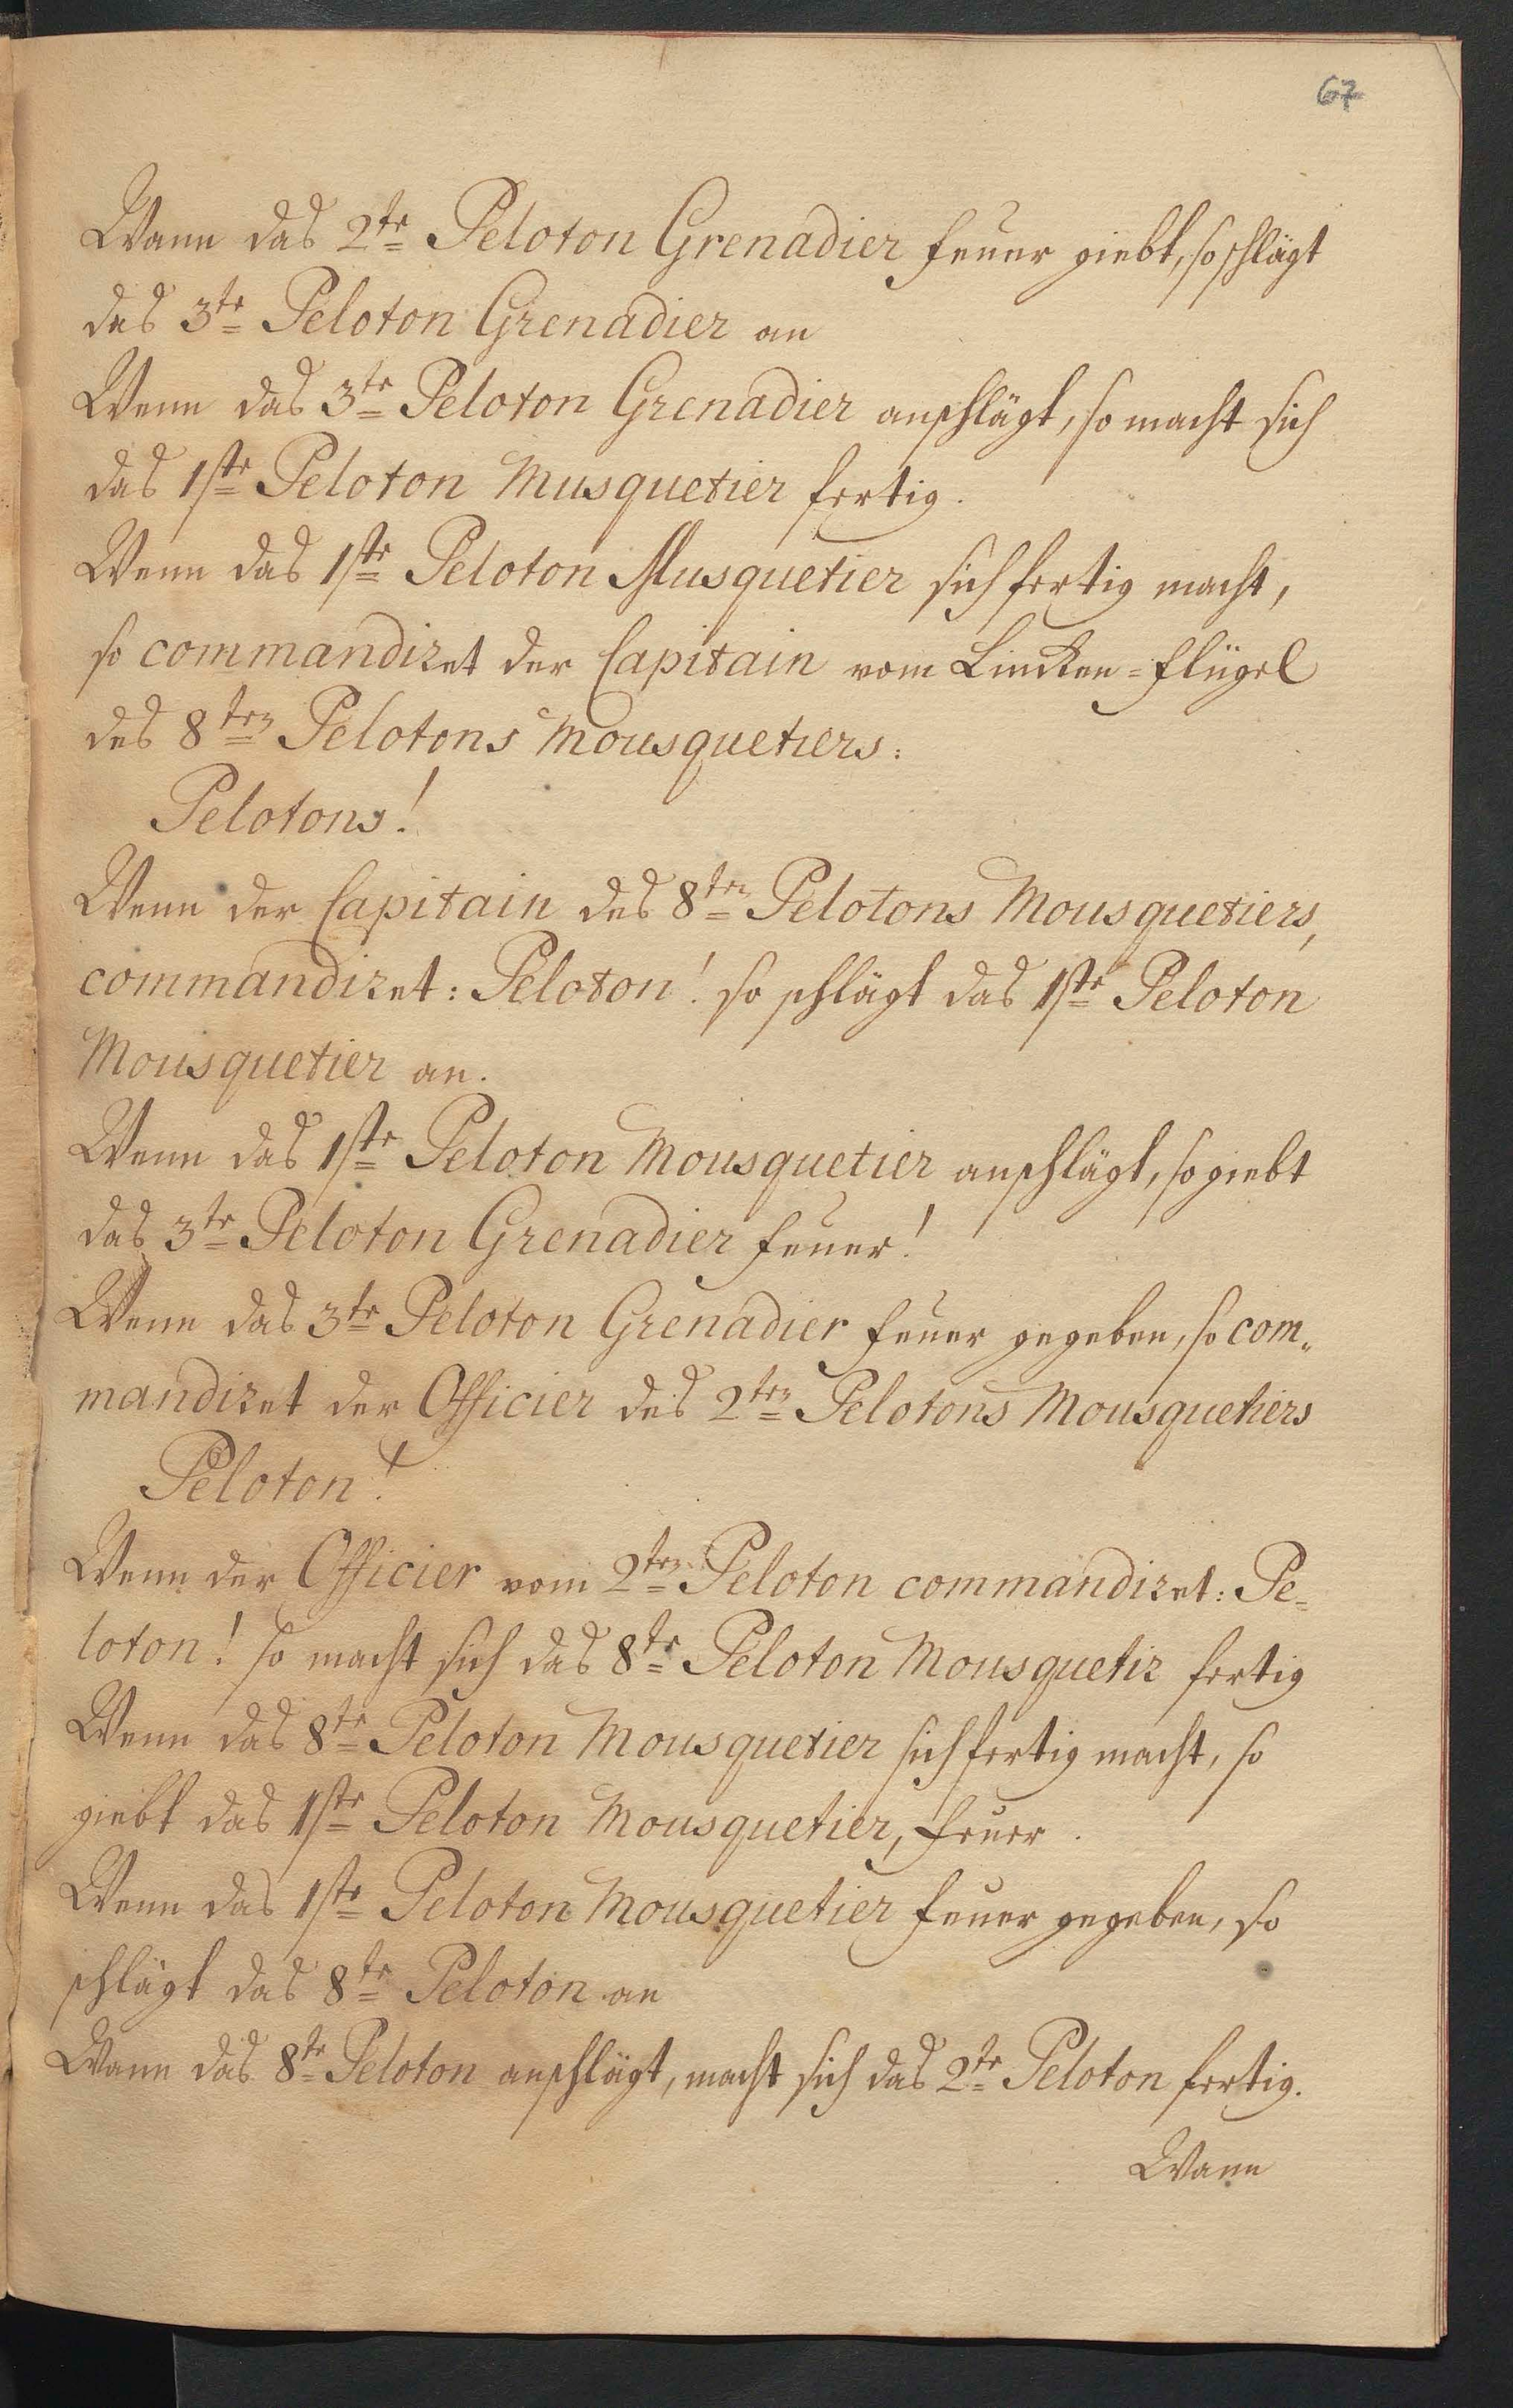 67
Wann das 2te Peloton Grenadier feuer giebt, so schlägt
das 3te Peloton Grenadier an
Wenn das 3te Peloton Grenadier anschlägt, so macht sich
das 1ste Peloton Musquetier fertig.
Wenn das 1ste Peloton Musquetier sich fertig macht,
so commandiret der Capitain vom Lincken=flügel
des 8ten Pelotons Mousquetiers:
Pelotons!
Wenn der Capitain des 8ten Pelotons Mousquetiers,
commandiret: Peloton! so schlägt das 1ste Peloton
Mousquetier an.
Wenn das 1ste Peloton Mousquetier anschlägt, so giebt
das 3te Peloton Grenadier feuer!
Wenn das 3te Peloton Grenadier feuer gegeben, so com„
mandiret der Officier des 2ten Pelotons Mousquetiers
Peloton!
Wenn der Officier vom 2ten Peloton commandiret: Pe=
loton! so macht sich das 8te Peloton Mousquetir fertig
Wenn das 8te Peloton Mousquetier sich fertig macht, so
giebt das 1ste Peloton Mousquetier, feuer.
Wenn das 1ste Peloton Mousquetier feuer gegeben, so
schlägt das 8te Peloton an
Wann das 8te Peloton anschlägt, macht sich das 2te Peloton fertig.
Wann